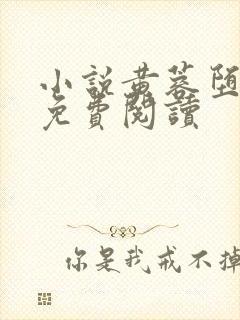 小說黄蓉堕
免費閱讀
你是我戒不掉